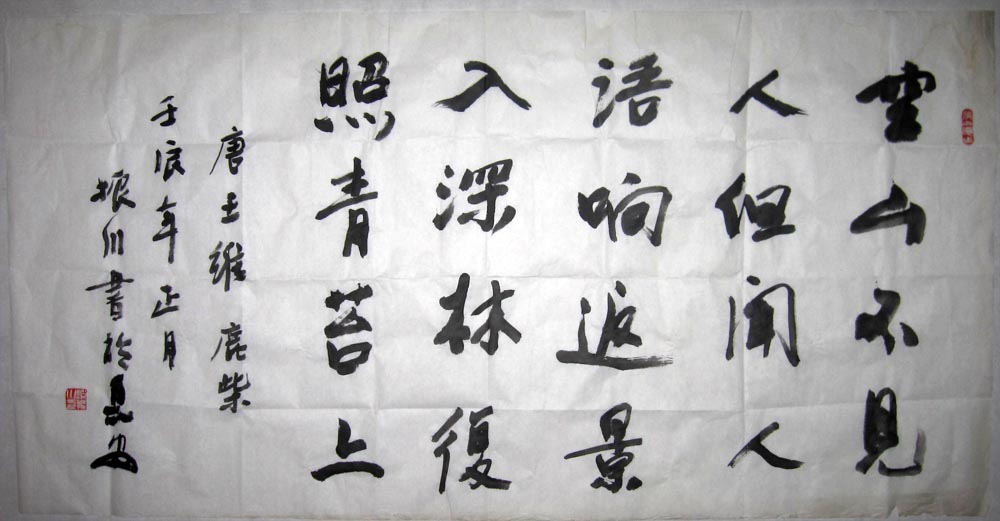 空山不見
人但聞人
語响返景
入深林復
照青苔上
唐王維鹿柴
壬辰年正月
振川書於長安